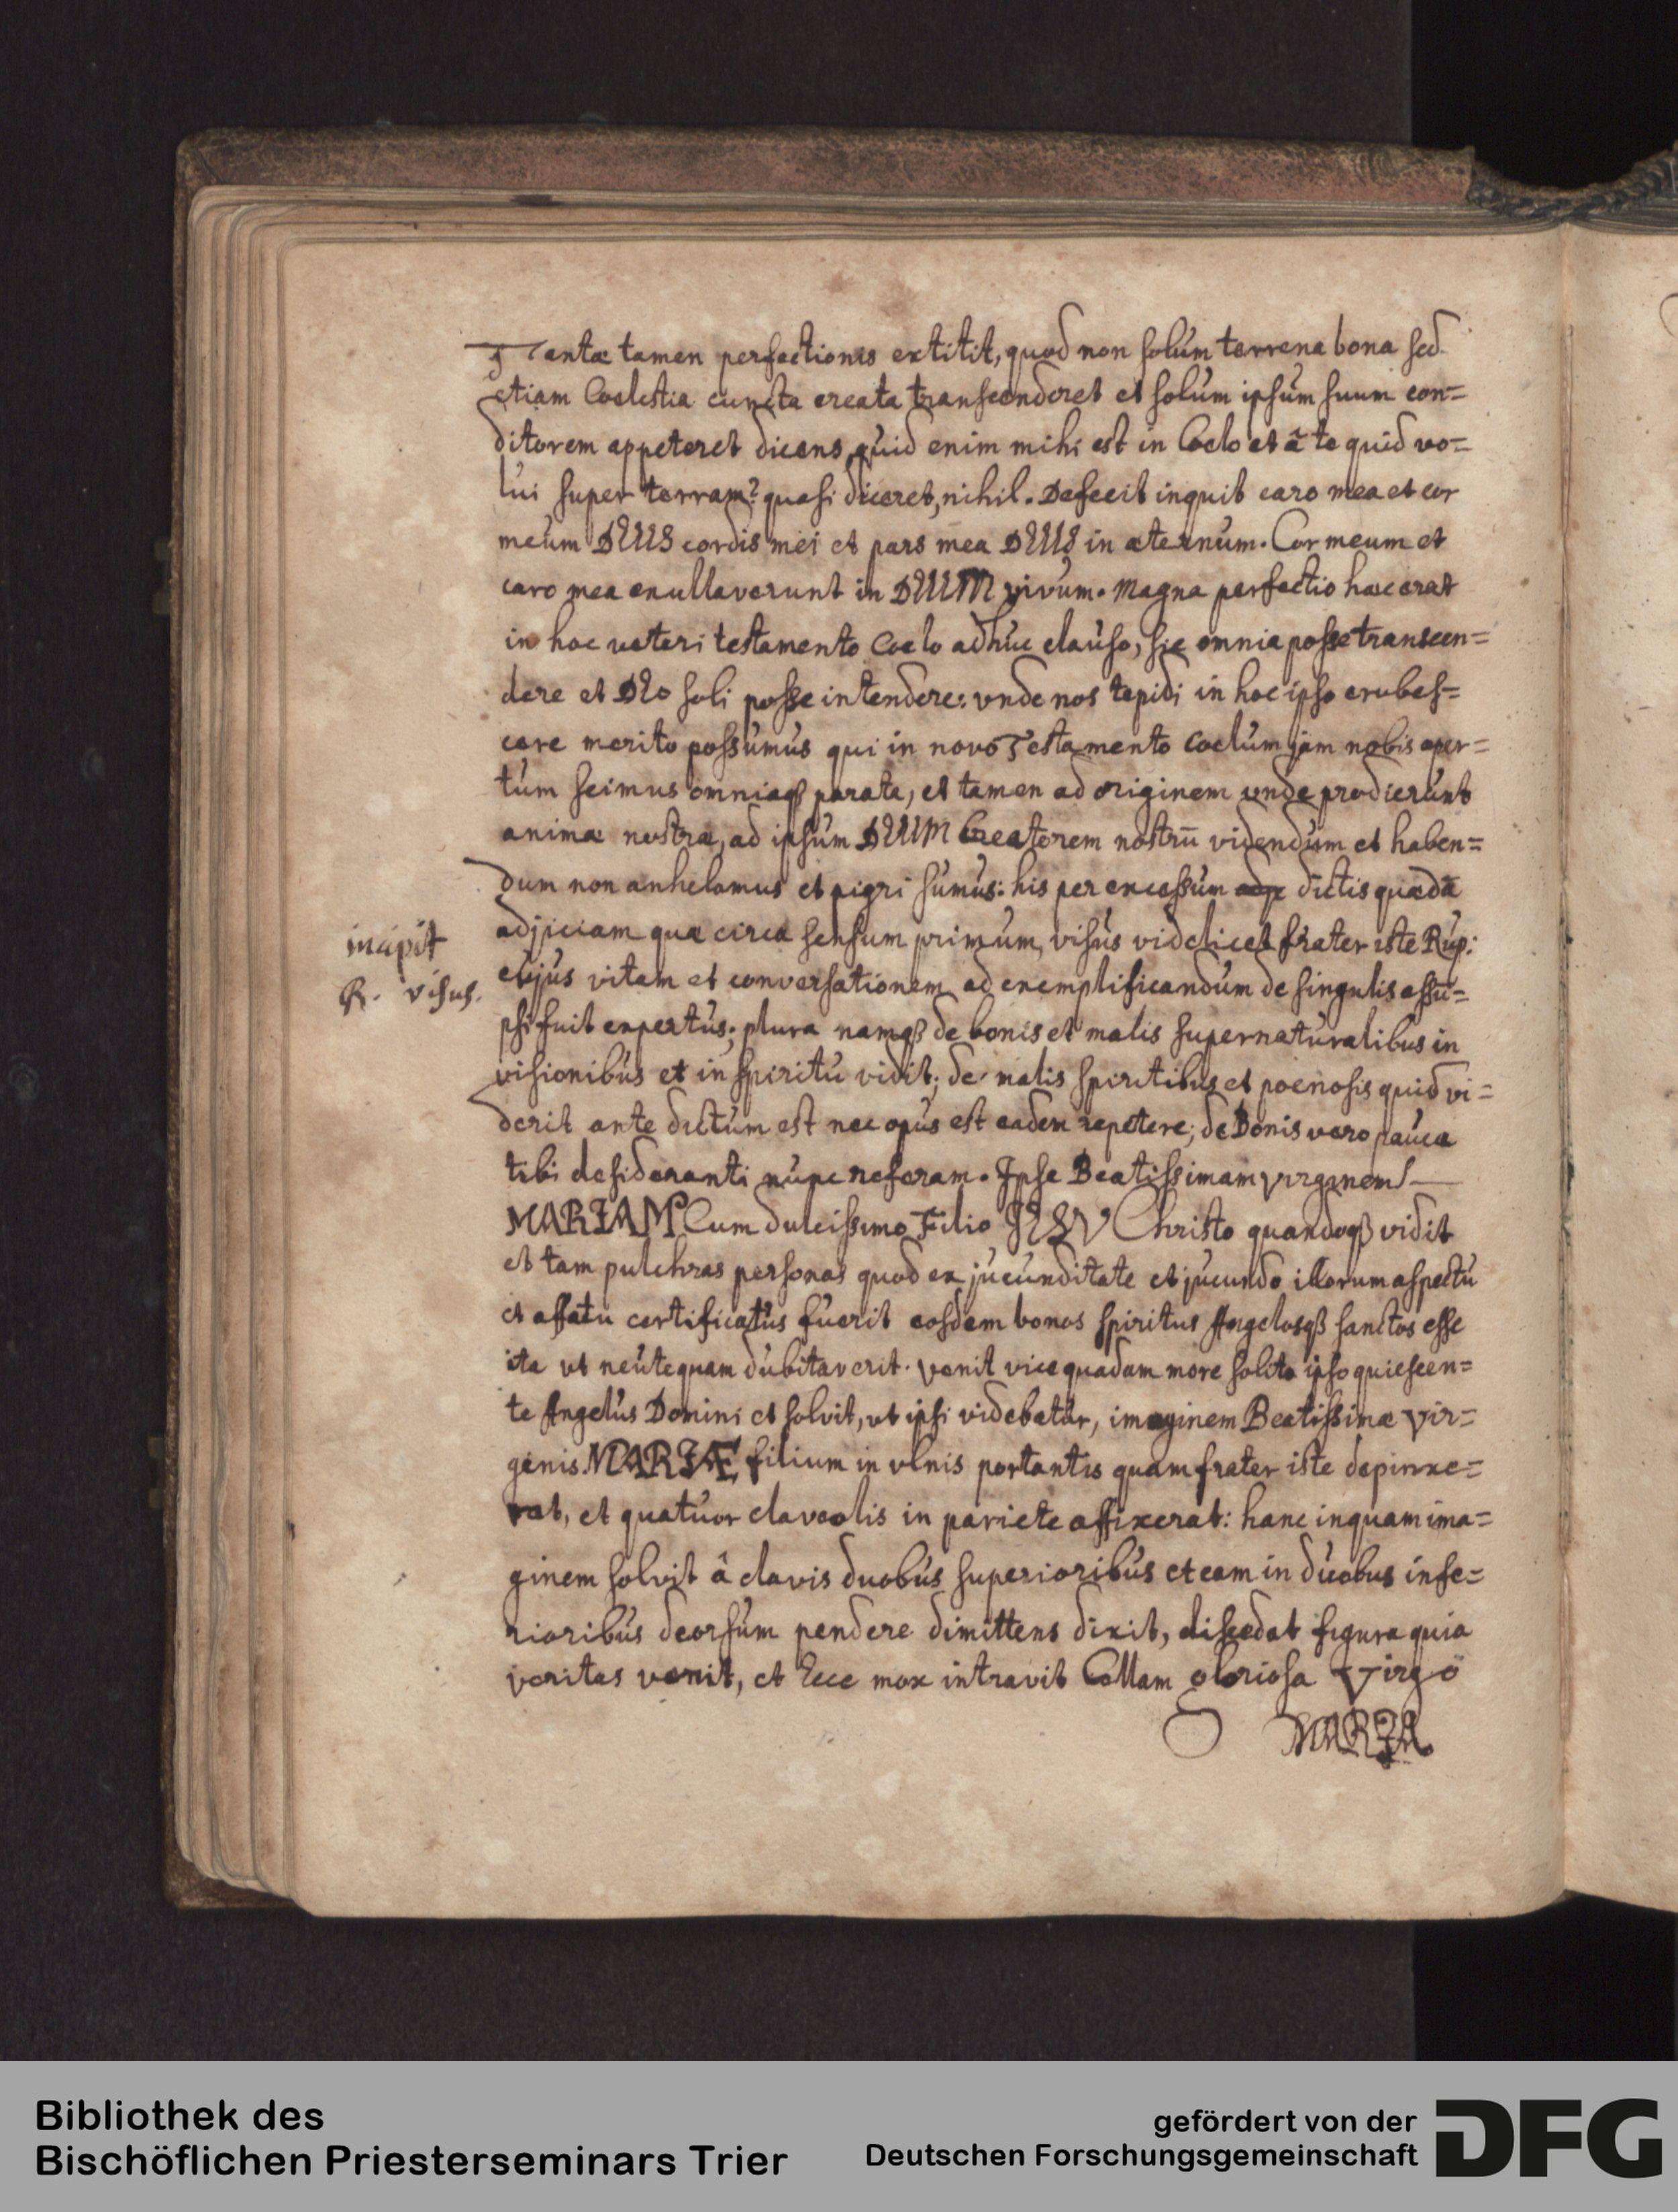 Tantæ tamen perfectionis extitit, quod non solum terrena bona sed
etiam Coelestia cuncta creata transcenderet et solum ipsum suum con=
ditorem appeteret dicens, quid enim mihi est in Coelo et â te quid vo=
lui super terram? quasi diceret, nihil. Defecit inquit caro mea et cor
meum DEUS cordis mei et pars mea DEUS in æternum. Cor meum et
caro mea exultaverunt in DEUM vivum. Magna perfectio haec erat
in hoc veteri testamento Coelo adhuc clauso, sic omnia posse transcen=
dere et DEO soli posse intendere: vnde nos tepidi in hoc ipso erubes=
cere merito possumus qui in novo Testamento Coelum jam nobis aper=
tum scimus omniaqȝ parata, et tamen ad originem unde prodierunt
animæ nostræ, ad ipsum DEUM Creatorem nostrū videndum et haben=
dum non anhelamus et pigri sumus: his per excessum dictis quædā
adjiciam quæ circa sensum primum, visus videlicet frater iste Rup:
incipit
R. visus.
cujus vitam et conversationem ad exemplificandum de singulis assū=
psi fuit expertus; plura namqȝ de bonis et malis supernaturalibus in
visionibus et in spiritu vidit; de malis spiritibus et poenosis quid vi=
derit ante dictum est nec opus est eadem repetere; de Bonis vero pauca
tibi desideranti nunc referam. Ipse Beatissimam virginem
MARIAM Cum dulcissimo Filio JESV Christo quandoqȝ vidit
et tam pulchras personas quod ex jucunditate et jucundo illorum aspectu
et affatu certificatus fuerit eosdem bonos spiritus Angelosqȝ sanctos esse
ita ut neutequam dubitaverit. venit vice quadam more solito ipso quiescen=
te Angelus Domini et solvit, ut ipsi videbatur, imaginem Beatissimæ Vir=
ginis MARIÆ filium in ulnis portantis quam frater iste depinxe=
rat, et quatuor claveolis in pariete affixerat: hanc inquam ima=
ginem solvit â clavis duobus superioribus et eam in duobus infe=
rioribus deorsum pendere dimittens dixit, discedat figura quia
veritas venit, et Ecce mox intravit Cellam gloriosa Virgo
MARIA
Bibliothek des
Bischöflichen Priesterseminars Trier
gefördert von der
Deutschen Forschungsgemeinschaft
DFG